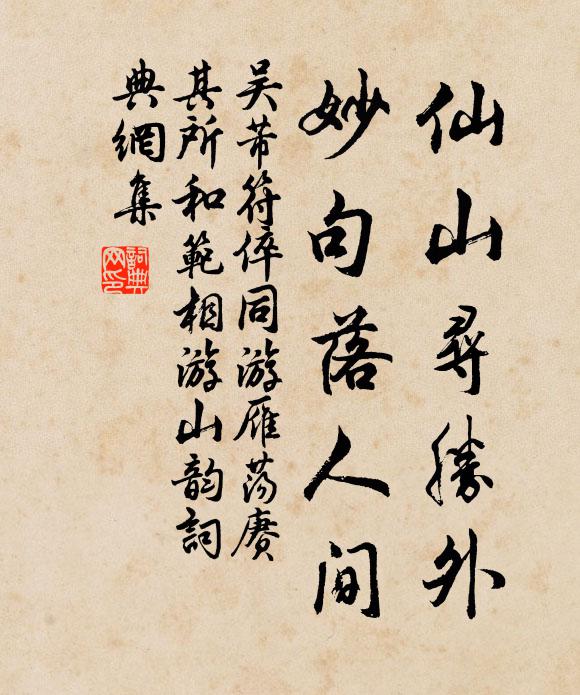 仙山尋勝外
妙句落人间
吴芾符倅同游雁荡赓
其所和範相游山韵詞
典網集
詞典
网印